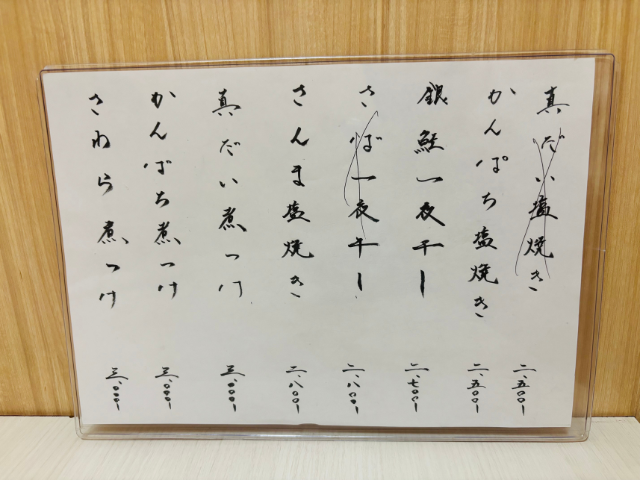 真だい塩焼き 二、五〇〇ー
かんぱち塩焼き 二、五〇〇ー
銀鮭一夜干し 二、七〇〇ー
さば一夜干し 二、八〇〇ー
さんま塩焼き 二、八〇〇ー
真だい煮つけ 三、〇〇〇ー
かんぱち煮つけ 三、〇〇〇ー
さわら煮つけ 三、〇〇〇ー